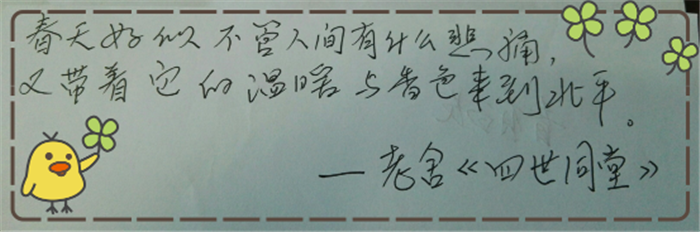 春天好似不管人间有什么悲痛，
又带着它的温暖与香色来到北平。
——老舍《四世同堂》